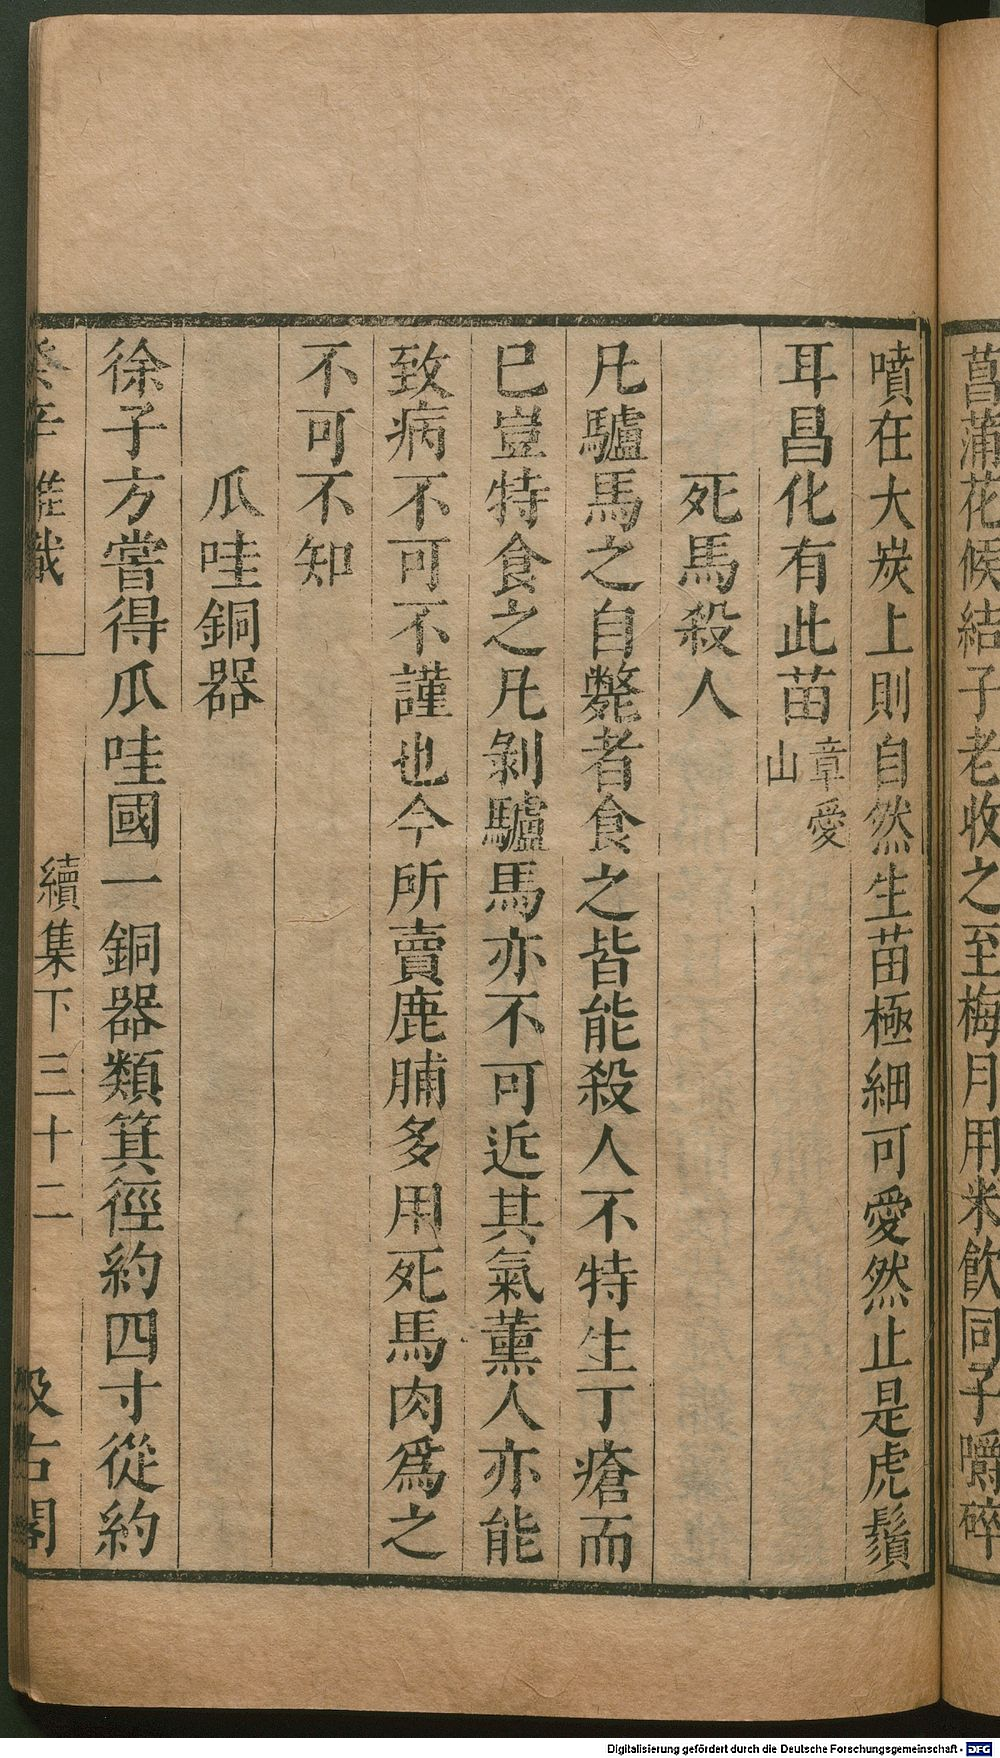 菖蒲花候結子老收之至梅月用米飲同子嚼碎
噴在大炭上則自然生苗極細可愛然止是虎鬚
耳昌化有此苗章愛山
死馬殺人
凡驢馬之自斃者食之皆能殺人不特生丁瘡而
已豈特食之凡剝驢馬亦不可近其氣薰人亦能
致病不可不謹也今所賣鹿脯多用死馬肉爲之
不可不知
爪哇銅器
徐子方嘗得爪哇國一銅器類箕徑約四寸從約
癸辛雜識 續集下 三十二 汲古閣
Digitalisierung gefördert durch die Deutsche Forschungsgemeinschaft - DFG